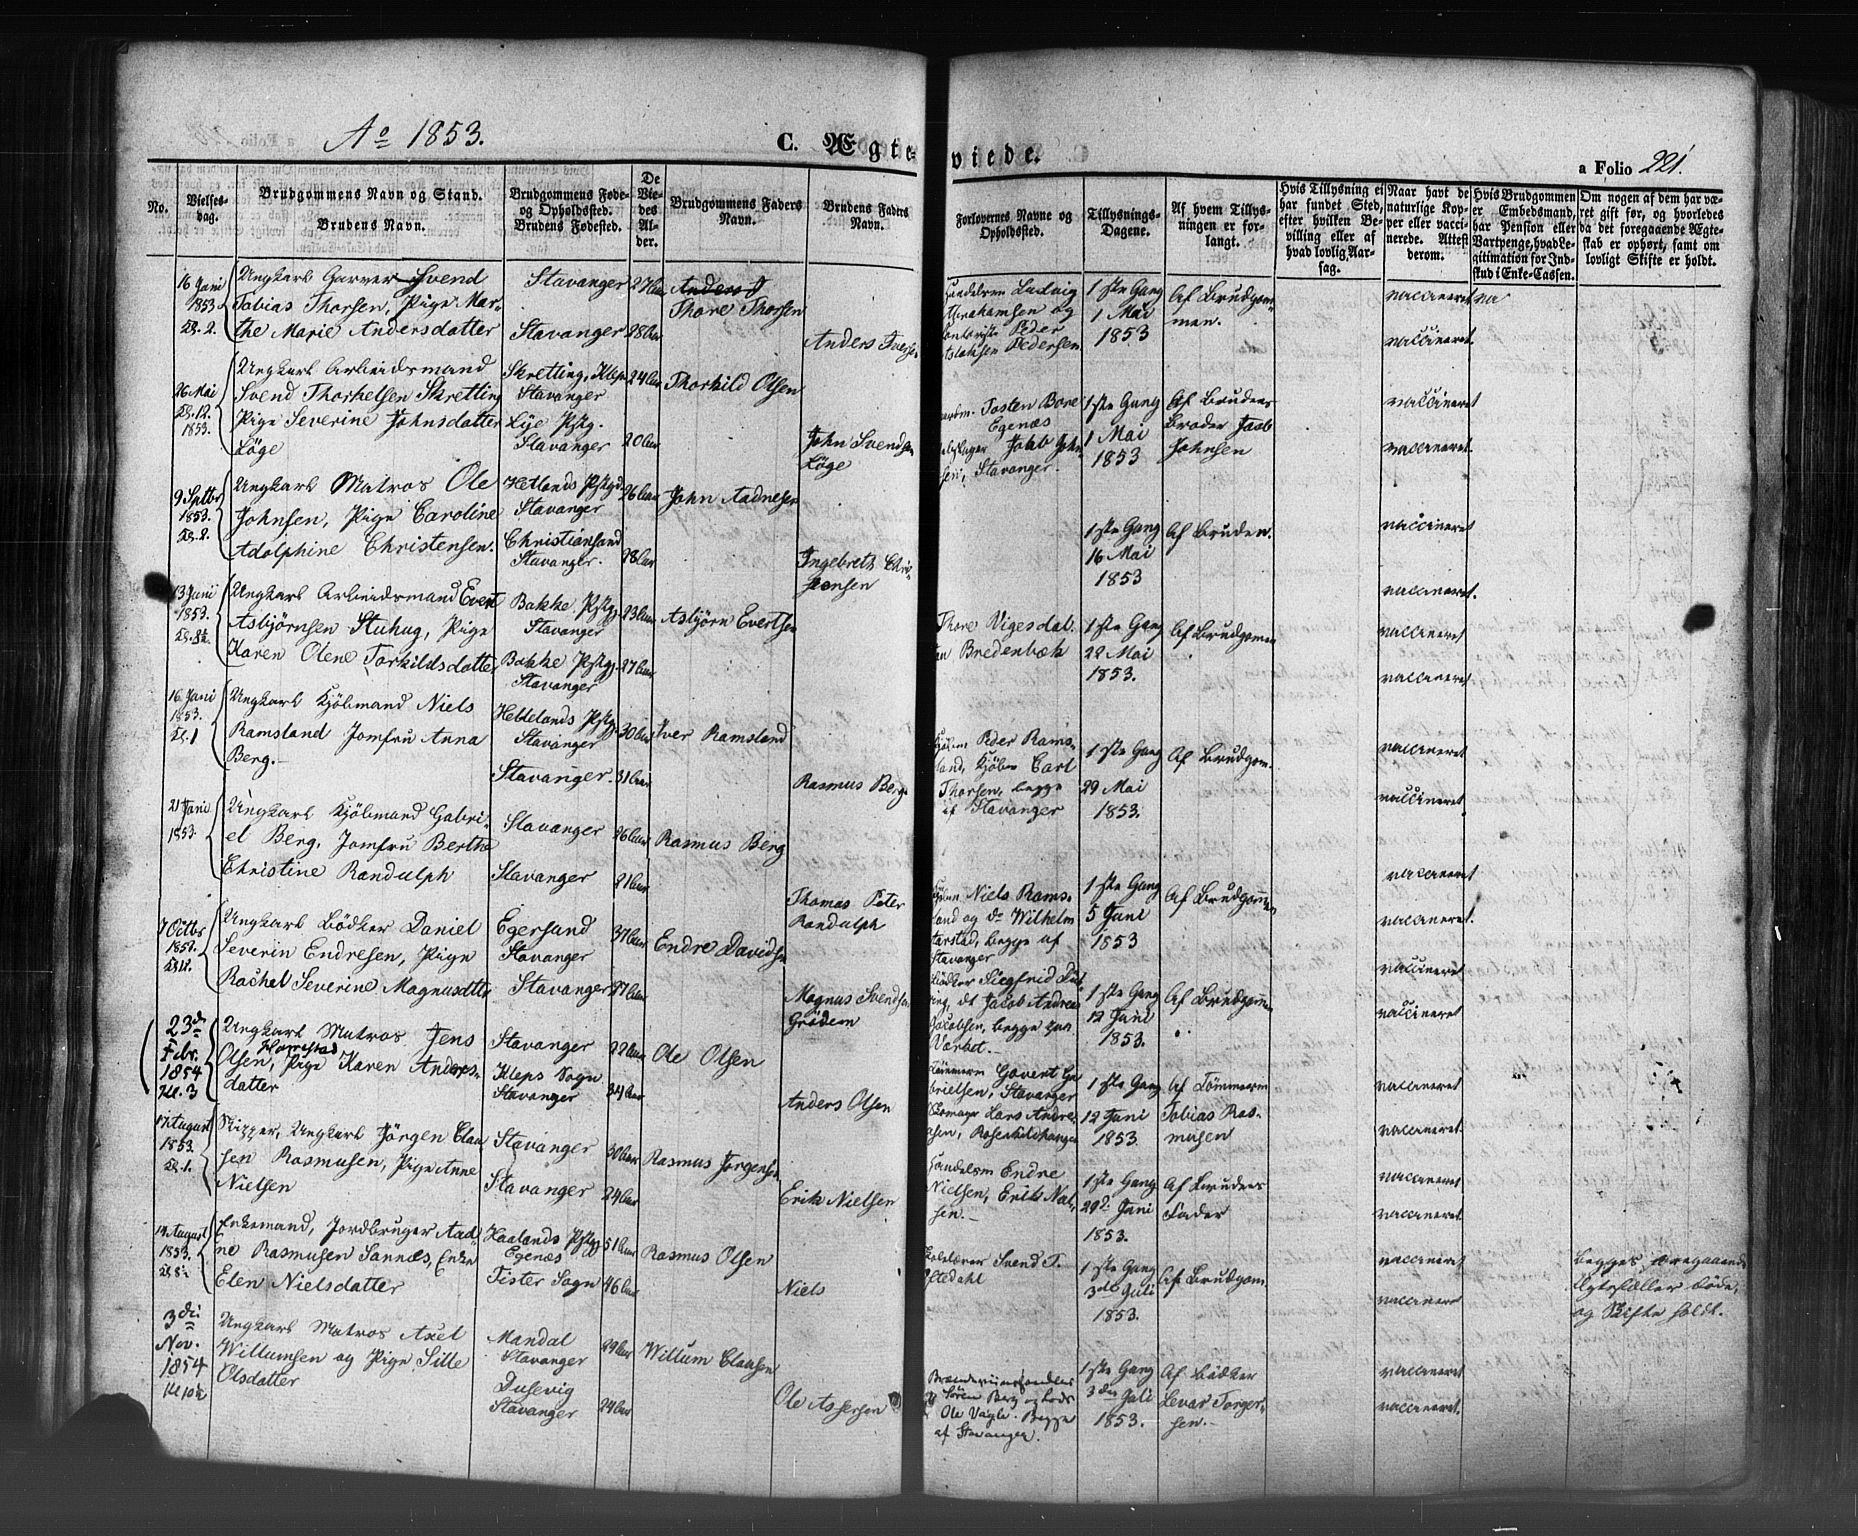 Ao 1853.
C. Ægte-
viede.
a Folio 221.
No.
Vielses-
dag.
Brudgommens Navn og Stand.
Brudens Navn.
Brudgommens Føde-
og Opholdssted.
Brudens Fødested.
De
Vie-
des
Al-
der.
Brudgommens Faders
Navn.
Brudens Faders
Navn.
Forlovernes Navne og
Opholdssted.
Tillysnings-
Dagene.
Af hvem Tillys-
ningen er for-
langt.
Hvis Tillysning ei
har fundet Sted,
efter hvilken Be-
villing eller af
hvad lovlig Aar-
sag.
Naar havt de
naturlige Kop-
per eller vacci-
nerede. Attest
derom.
Hvis Brudgommen
er Embedsmand,
har Pension eller
Vartpenge, hvad Le-
gitimation for Ind-
skud i Enke-Cassen.
Om nogen af dem har væ-
ret gift før, og hvorledes
da det foregaaende Ægte-
skab er ophørt, samt om
lovligt Skifte er holdt.
16 Juni
1853
Kl. 2.
Ungkarl Garver Svend
Tobias Thorsen, Pige Mar-
the Marie Andersdatter
Stavanger
Stavanger
27 Aar
28 Aar
Anders
Thore Thorsen
Anders Iversen
Handelsm Ludvig
Abrahamsen og
Peder
Pedersen
1ste Gang
1 Mai
1853
Af Brudgom-
men.
vaccineret
vaccineret
26 Mai
Kl. 12.
1853.
Ungkarl Arbeidsmand
Svend Thorkelsen Skretting
Pige Severine Johnsdatter
Løge
Skretting, Klep
Stavanger
Lye Pstg.
Stavanger
24 Aar
20 Aar
Thorkild Olsen
John Svendsen
Løge
Tosten Bore
Egenæs
Jacob John
sen, Stavanger.
1ste Gang
1 Mai
1853
Af Brudens
Broder Jacob
Johnsen
vaccineret
vaccineret.
9 Septbr
1853.
Kl. 2.
Ungkarl Matros Ole
Johnsen, Pige Caroline
Adolphine Christensen.
Hetlands Pstgd
Stavanger
Christiansand
Stavanger.
26 Aar
28 Aar
John Aadnesen
Ingebreth Chri-
stensen
1ste Gang
16 Mai
1853
Af Bruden.
vaccineret
vaccineret.
13 Juni
1853.
Kl. 8½.
Ungkarl Arbeidsmand Evert
Asbjørnsen Stuhug, Pige
Karen Olene Torkildsdatter
Bakke Pstgj.
Stavanger
Bakke Pstgj.
Stavanger
23 Aar
27 Aar
Asbjørn Evertsen
Thore Vigesdal.
Bredenbæk
1ste Gang
22 Mai
1853.
Af Brudgommen
vaccineret
vaccineret.
16 Juni
1853.
Kl. 1
Ungkarl Kjøbmand Niels
Ramsland Jomfru Anna
Berg.
Hetlands Pstg.
Stavanger
Stavanger.
30 Aar
31 Aar
Iver Ramsland
Rasmus Berg
Kjøbm Peder Rams-
land, Kjøbm Carl
Thorsen, begge
af Stavanger
1ste Gang
29 Mai
1853.
Af Brudgom.
vaccineret
vaccineret.
21 Juni
1853.
Ungkarl Kjøbmand Gabri-
el Berg, Jomfru Berthe
Christine Randulph
Stavanger
Stavanger
26 Aar
21 Aar
Rasmus Berg
Thomas Peter
Randulph
Niels Rams-
land og do Wilhelm
begge af
Stavanger
1ste Gang
5 Juni
1853
Af Brudgommen
vaccineret
vaccineret.
7 Octbr
1853.
Ungkarl Bødker Daniel
Severin Endresen, Pige
Rachel Severine Magnusdtter
Egersund
Stavanger
Stavanger
37 Aar
27 Aar
Endre Davidsen
Magnus Svendsen
Grødem
Bødker Siegfrid
do Jacob Andreas
Jacobsen, begge paa
Varhet.
1ste Gang
12 Juni
1853.
Af Brudgommen
vaccineret
vaccineret
23de
Febr.
1854
Kl. 3
Ungkarl Matros Jens
Olsen, Harestad Pige Karen Anders-
datter
Stavanger
Kleps Sogn
Stavanger
22 Aar
34 Aar
Ole Olsen
Anders Olsen
Govert Ga
brielsen, Stavanger
Lars Andre-
sen, Rosenkildehaugen
1ste Gang
12 Juni
1853.
Af Tømmerm
Tobias Ras-
musen
vaccineret
vaccineret.
17 August
1853.
Kl. 1.
Skipper, Ungkarl Jørgen Clau
sen Rasmusen, Pige Anne
Nielsen
Stavanger
Stavanger
30 Aar
24 Aar
Rasmus Jørgensen
Erik Nielsen
Handelsm Endre
Nielsen, Erik Niel-
sen.
1ste Gang
29d Juni
1853.
Af Brudens
Fader
vaccineret
vaccineret.
14 August
1853.
Kl. 8½
Enkemand, Jordbruger Aad-
ne Rasmusen Sannæs, Enke
Elen Nielsdatter
Haalands Pstgj
Egenæs
Tister Sogn
51 Aar
46 Aar
Rasmus Olsen
Niels
Svend T.
1ste Gang
3die Juli
1853.
Af Brudgom.
vaccineret
vaccineret
begges foregaaende
Ægtefæller døde,
og Skifte holdt.
3die
Nov.
1854
Kl 10½
Ungkarl Matros Axel
Willumsen og Pige Sille
Olsdatter
Mandal
Stavanger
Dusevig
Stavanger
29 Aar
24 Aar
Willum Clausen
Ole Assersen
Brændeviinshandler
Søren Berg og Lods
Ole Vagle. Begge
af Stavanger.
1ste Gang
3die Juli
1853.
Af Bødker
Levar Torger-
sen.
vaccineret
vaccineret.